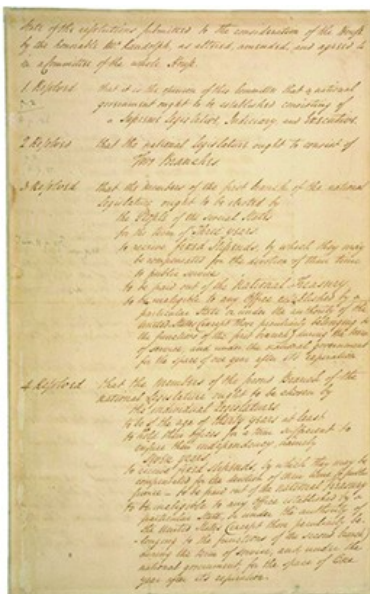 State of the resolutions submitted to the consideration of the House
by the honorable Mr. Randolph, as altered, amended, and agreed to
in a Committee of the whole House.
1 Resolved that it is the opinion of this Committee that a national
government ought to be established consisting of
a Supreme Legislative, Judiciary, and Executive.
2 Resolved that the national Legislature ought to consist of
Two Branches.
3 Resolved that the members of the first branch of the national
Legislature ought to be elected by
the People of the several States
for the term of Three years.
to receive fixed stipends, by which they may
be compensated for the devotion of their time
to public service
to be paid out of the National Treasury.
to be ineligible to any Office established by a
particular State or under the authority of the
United States (except those peculiarly belonging to
the functions of the first branch) during the term
of service, and under the national government
for the space of one year after its expiration.
4 Resolved that the Members of the second Branch of the
national Legislature ought to be chosen by
the individual Legislatures.
to be of the age of thirty years at least.
to hold their offices for a term sufficient to
ensure their independency, namely
seven years.
to receive fixed stipends, by which they may be
compensated for the devotion of their time to public
service to be paid out of the National Treasury
to be ineligible to any Office established by a
particular State, or under the authority of
the United States (except those peculiarly be-
longing to the functions of the second branch)
during the term of service, and under the
national government, for the space of One
year after its expiration.